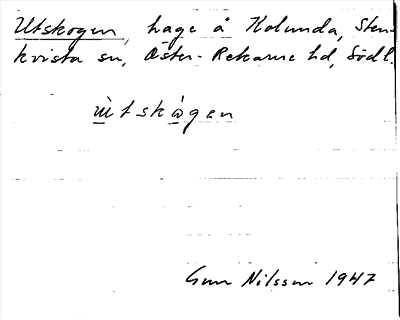 Utskogen, hage å Kolunda, Sten-
kvista sn, Öster-Rekarne hd, Södl.
ùtskògen
Gun Nilsson 1947